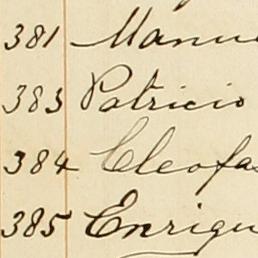 381 Manu
383 Patricio
384 Cleofa
385 Enriqu